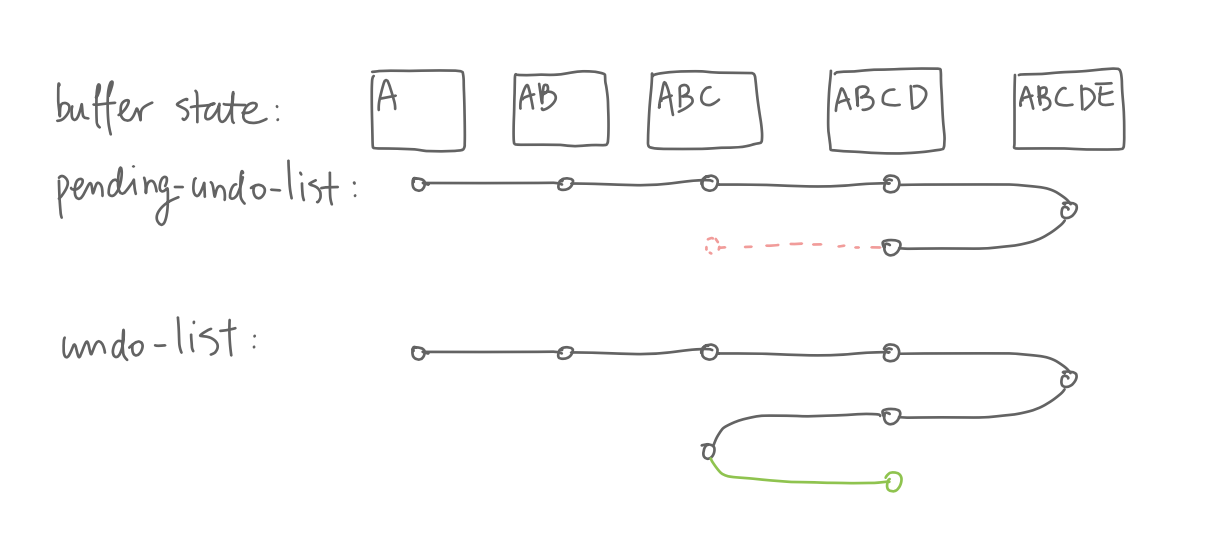 buffer state: A AB ABC ABCD ABCDE
pending-undo-list:
undo-list: